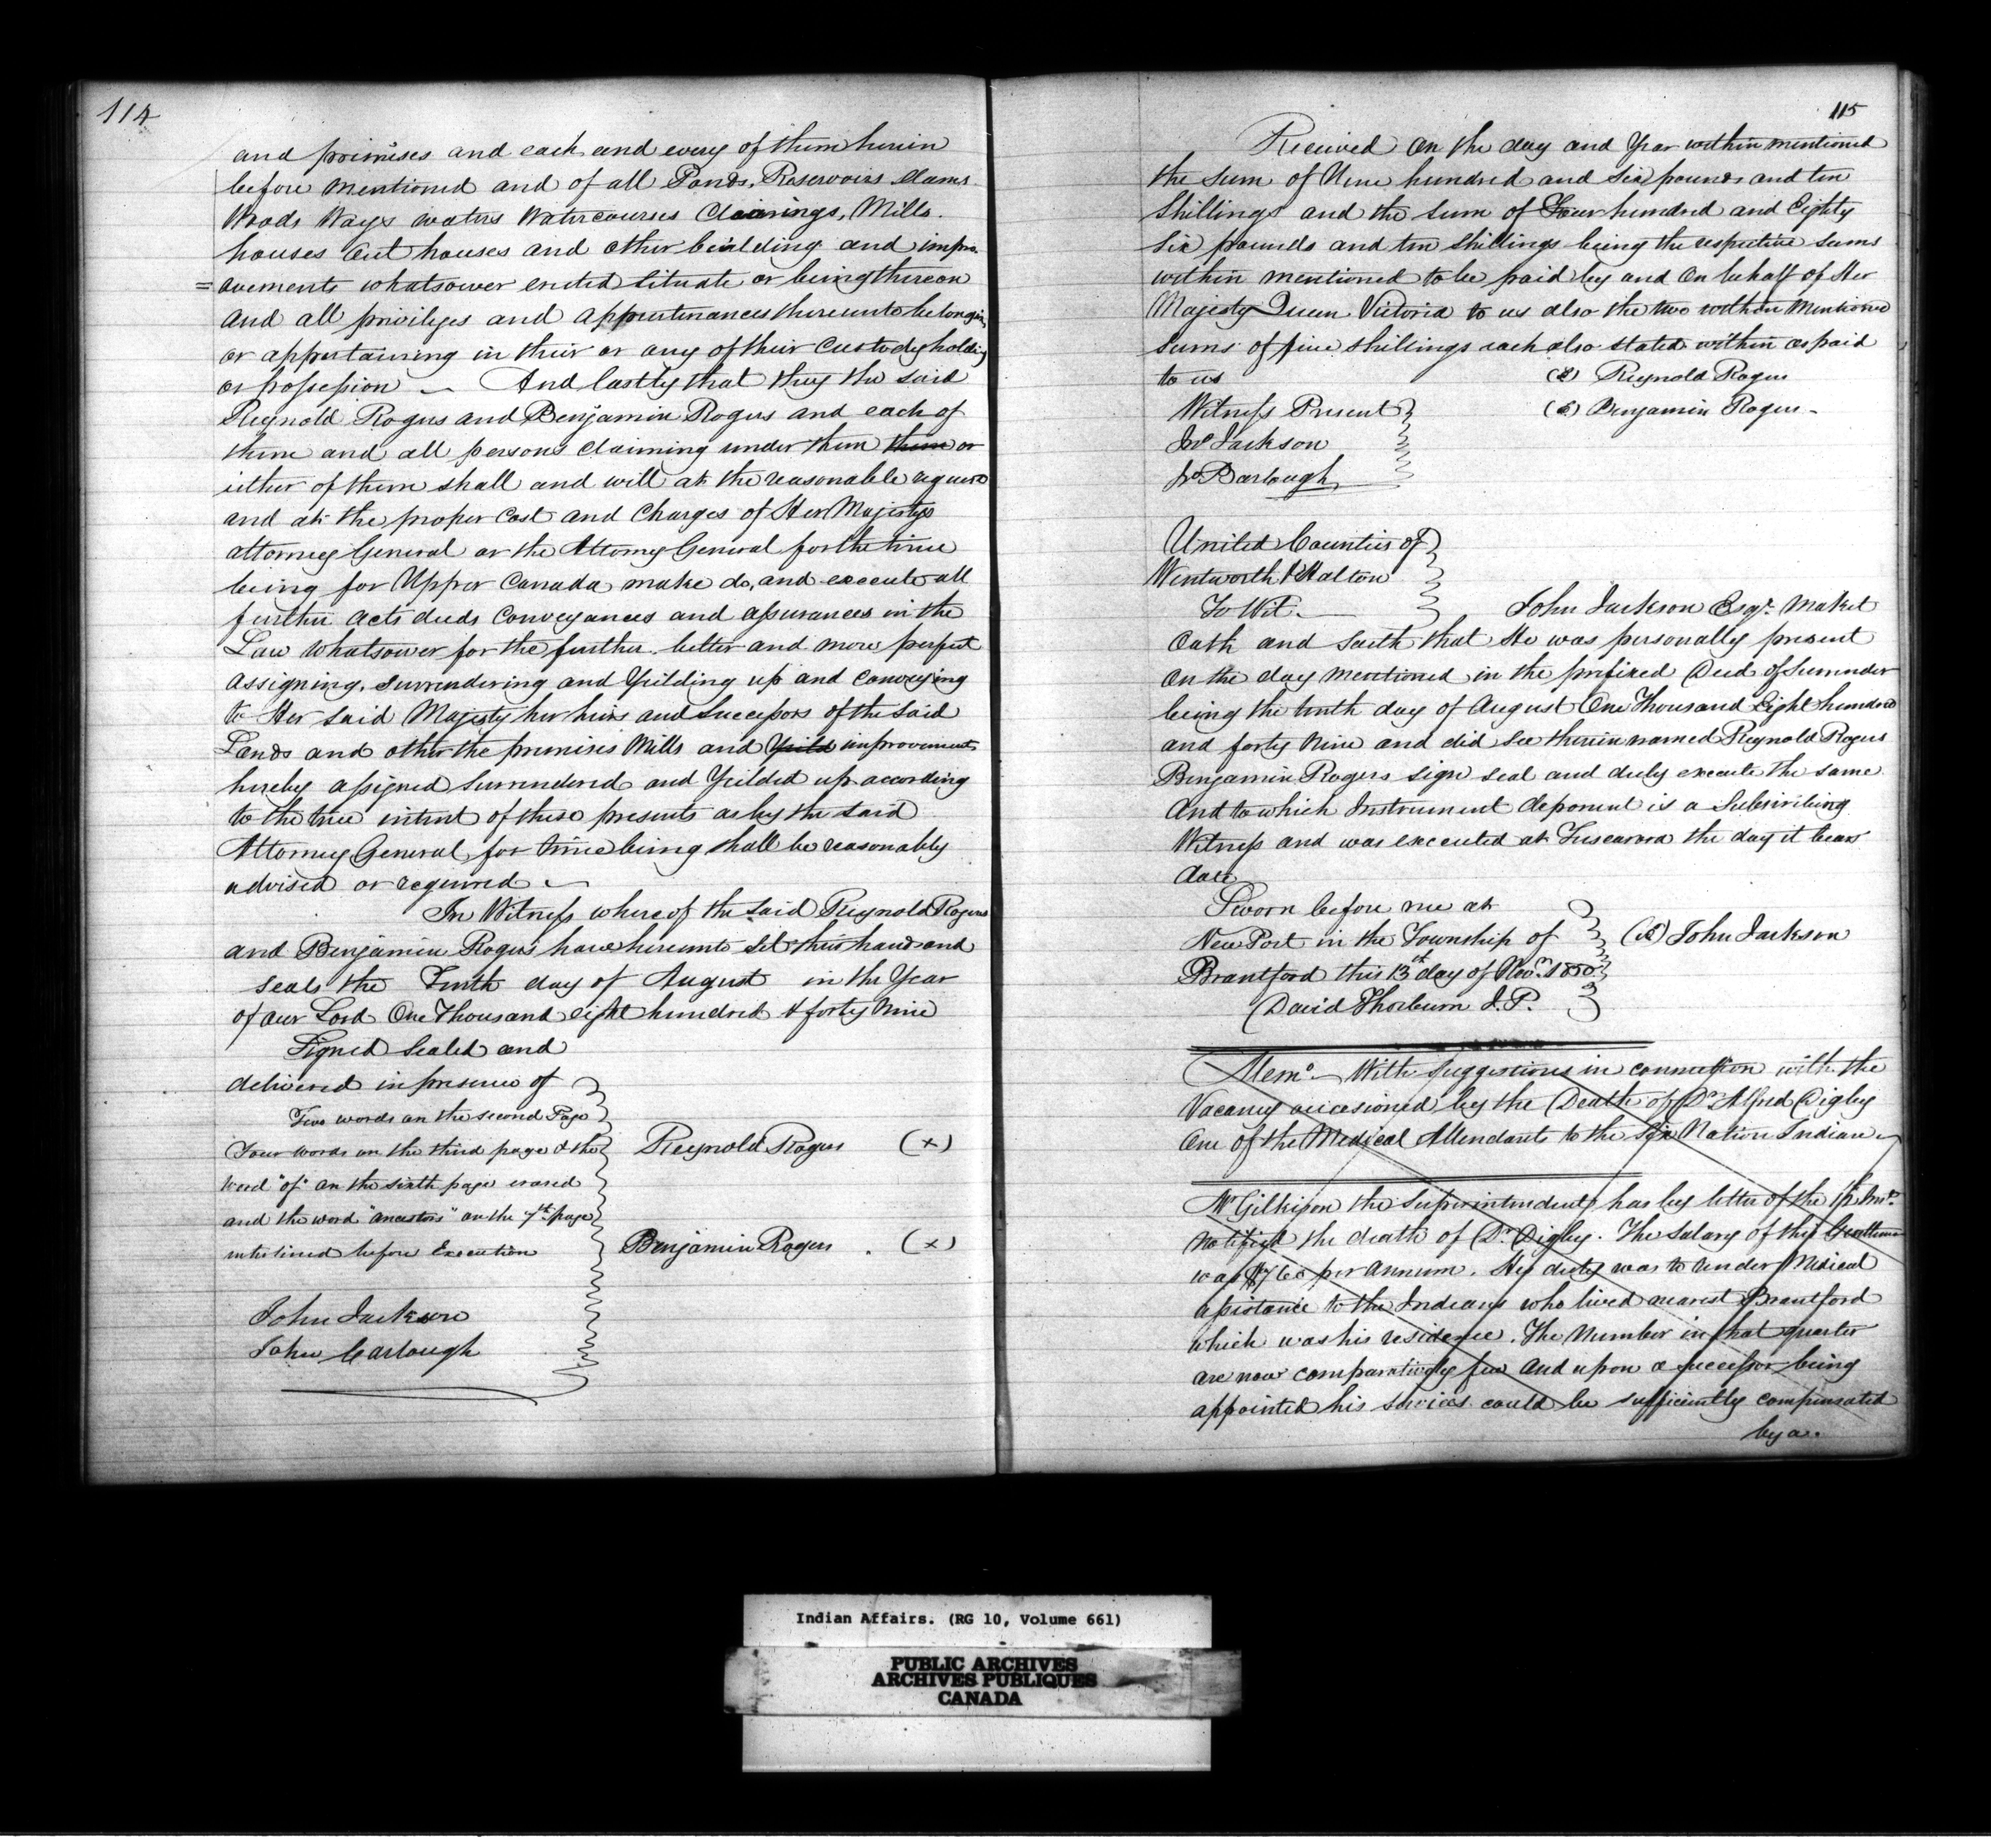 114
and premises and each and every of them herein
before mentioned and of all Ponds, Reservoirs Dams
Woods Ways waters Watercourses Clearings, Mills.
houses Out houses and other building and impro-
=ovements whatsoever erected Situate or being thereon
And all privileges and appurtenances thereunto belonging
or appertaining in their or any of their Custody holding
or possession — And lastly that they the said
Reynold Rogers and Benjamin Rogers and each of
them and all persons Claiming under them them or
either of them shall and will at the reasonable request
and at the proper Cost and Charges of Her Majestys
attorney General or the Attorney General for the time
being for Upper Canada make do, and execute all
further acts deeds Conveyances and assurances in the
Law whatsoever for the further better and more perfect
Assigning, surrendering and Yeilding up and Conveying
to Her said Majesty her heirs and Successors of the said
Lands and other the premises Mills and Yeild improvements
hereby assigned Surrendered and Yeilded up according
to the true intent of these presents as by the said
Attorney General for time being shall be reasonably
advised or required —
In Witness whereof the said Reynold Rogers
and Benjamin Rogers have hereunto set their hand and
seals the Tenth day of August in the Year
of our Lord One Thousand eight hundred & forty Nine
Signed Sealed and
delivered in presence of
Two words on the second Page
Four words on the third page & the
Word "of" on the sixth page erased
and the word "ancestors" on the 7th page
interlined before Execution
Reynold Rogers (x)
Benjamin Rogers. (x)
John Jackson
John Carlough
115
Received on the day and Year within mentioned
the Sum of Nine hundred and Six pounds and ten
Shillings and the Sum of Four hundred and Eighty
Six pounds and ten Shillings being the respective sums
within mentioned to be paid by and on behalf of Her
Majesty Queen Victoria to us also the two within Mentioned
Sums of five shillings each also stated within as paid
to us
Reynold Rogers
Benjamin Rogers -
Witness Present
Jno Jackson
Jno Barlough
United Counties of
Wentworth & Halton
To Wit. —
John Jackson Esqr. Maket
Oath and Saith that He was personally present
On the day mentioned in the prefixed Deed of Surrender
being the tenth day of August One Thousand Eight hundred
and forty Nine and did see therein named Reynold Rogers
Benjamin Rogers sign seal and duly execute the same
And to which Instrument deponent is a Subscribing
Witness and was executed at Tuscarora the day it bears
date
Sworn before me at
New Port in the Township of
Brantford this 13th day of Novr. 1850
David Thorburn J.P.
John Jackson
Memo — With Suggestions in connection with the
Vacancy occasioned by the Death of Dr Alfred Digby
One of the Medical Attendants to the Six Nation Indians
Mr Gilkison the Superintendent has by letter of the Inst.
Notified the death of Dr Digby. The Salary of this Gentleman
was per Annum. His duty was to render Medical
assistance to the Indians who lived nearest Brantford
which was his residence. The Number in that quarter
are now comparatively few and upon a successor being
appointed his services could be sufficiently compensated
by a.
Indian Affairs. (RG 10, Volume 661)
PUBLIC ARCHIVES
ARCHIVES PUBLIQUES
CANADA